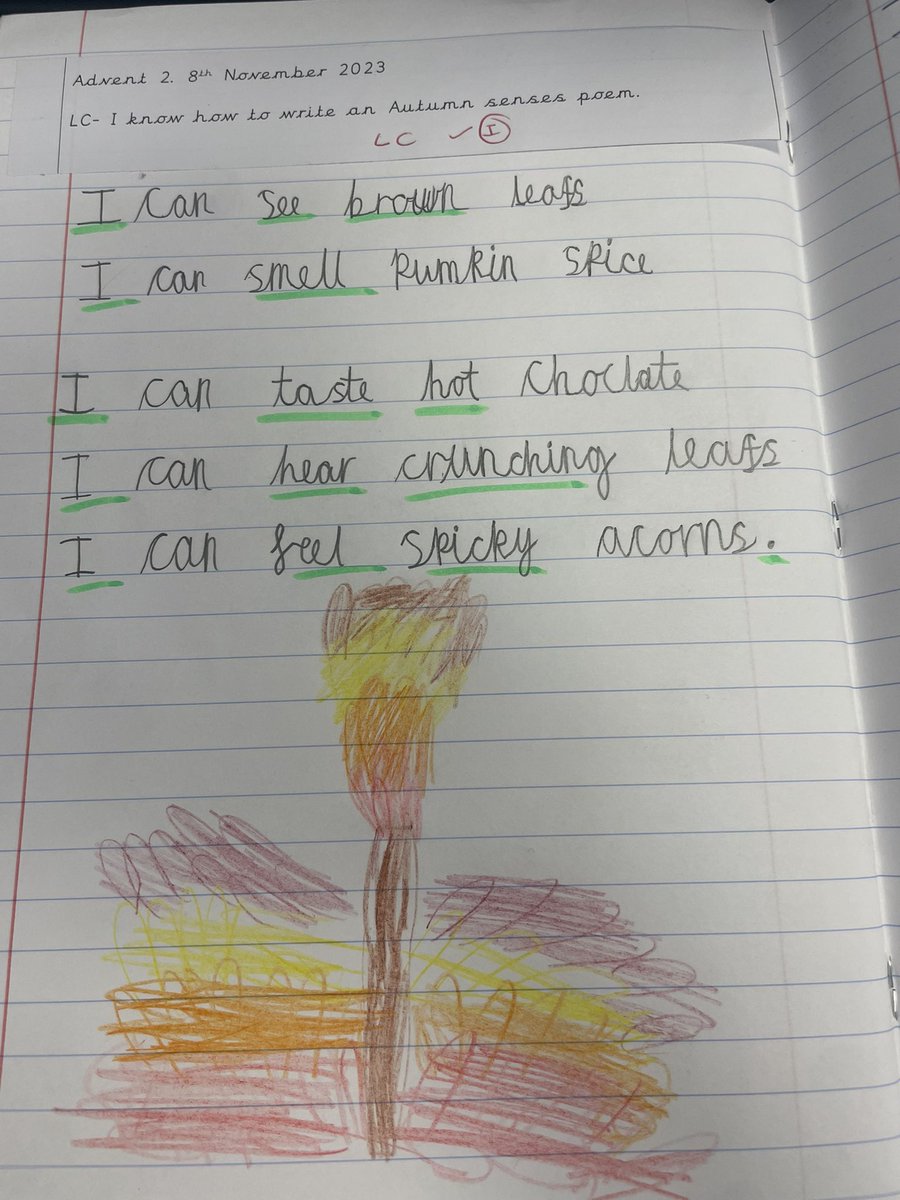 Advent 2. 8th November 2023
LC- I know how to write an Autumn senses poem.
LC ✓ I
I can see brown leafs
I can smell pumkin spice
I can taste hot choclate
I can hear crunching leafs
I can feel spicky acorns.